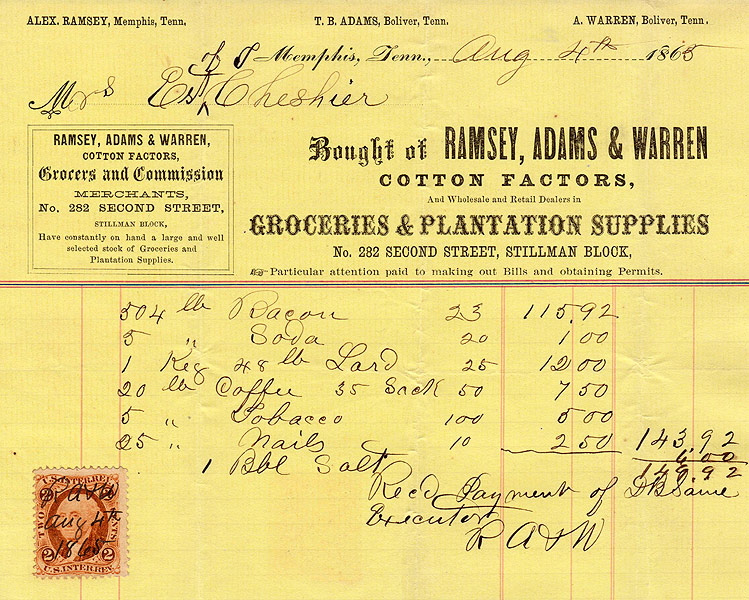 ALEX. RAMSEY, Memphis, Tenn. T. B. ADAMS, Boliver, Tenn. A. WARREN, Boliver, Tenn.
Memphis, Tenn., Aug 4th 1865
Mrs Est of P Cheshier
RAMSEY, ADAMS & WARREN,
COTTON FACTORS,
Grocers and Commission
MERCHANTS,
No. 282 SECOND STREET,
STILLMAN BLOCK,
Have constantly on hand a large and well
selected stock of Groceries and
Plantation Supplies.
Bought of RAMSEY, ADAMS & WARREN
COTTON FACTORS,
And Wholesale and Retail Dealers in
GROCERIES & PLANTATION SUPPLIES
No. 282 SECOND STREET, STILLMAN BLOCK,
Particular attention paid to making out Bills and obtaining Permits.
504 lb Bacon 23 115,92
5 " Soda 20 1 00
1 Keg 48 lb Lard 25 12 00
20 lb Coffee 35 Sack 50 7 50
5 " Tobacco 100 5 00
25 " Nails 10 2 50 143,92
1 Bbl Salt 6.00
149 92
Recd Payment of
Executor
R A & W
U.S. INTER. REV.
R A & W
Aug 4th
1865
TWO CENTS
2 2
U.S. INTER. REV.